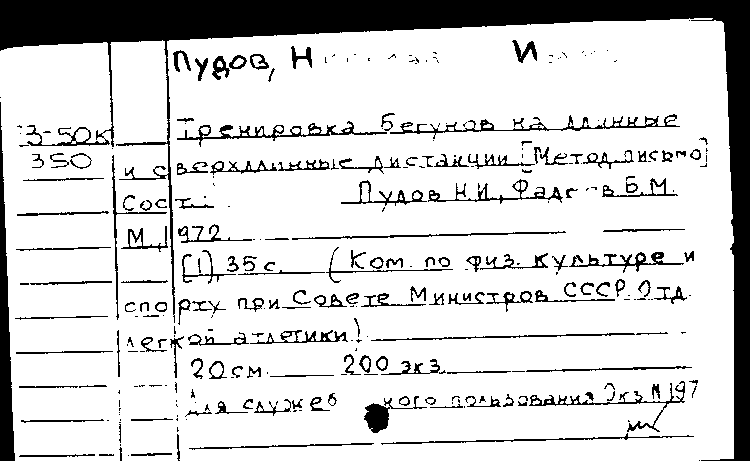 Пудов, Н
З-50к
350
Тренировка бегунов на длинные
и сверхдлинные дистанции [Метод. письмо]
Сост.: Пудов Н.И., Фадеев Б.М.
М., 1972.
[1], 35 с. (Ком. по физ. культуре и
спорту при Совете Министров СССР. Отд.
легкой атлетики)
20 см. 200 экз.
Для служебного пользования Экз. N 197